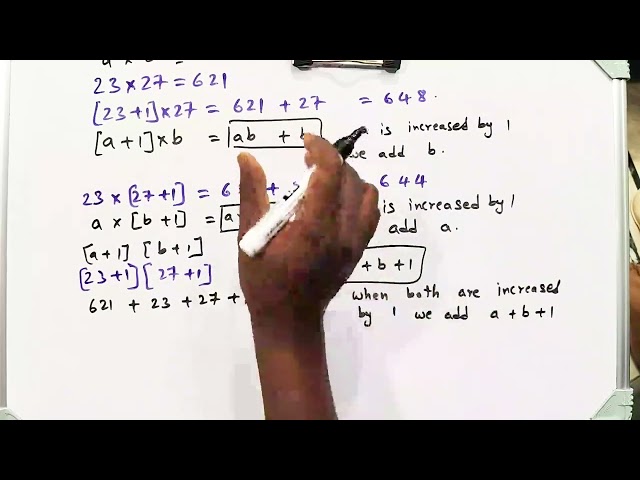 23 × 27 = 621
[23 + 1] × 27 = 621 + 27 = 648.
[a + 1] × b = ab + b is increased by 1
we add b.
23 × [27 + 1] = 6 + 644
a × [b + 1] = a is increased by 1
add a.
[a + 1] [b + 1]
[23 + 1] [27 + 1] + b + 1
621 + 23 + 27 + when both are increased
by 1 we add a + b + 1